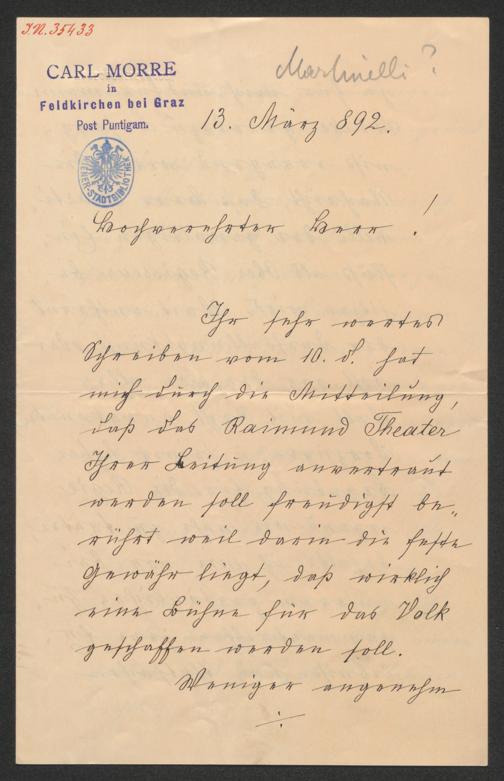 I.N. 35433
Martinelli?
CARL MORRE
in
Feldkirchen bei Graz
Post Puntigam.
WIENER STADTBIBLIOTHEK
13. März 892.
Hochverehrter Herr!
Ihr sehr wertes
Schreiben vom 10. d. hat
mich durch die Mitteilung,
daß das Raimund Theater
Ihrer Leitung anvertraut
werden soll freudigst be„
rührt weil darin die feste
Gewähr liegt, daß wirklich
eine Bühne für das Volk
geschaffen werden soll.
Weniger angenehm